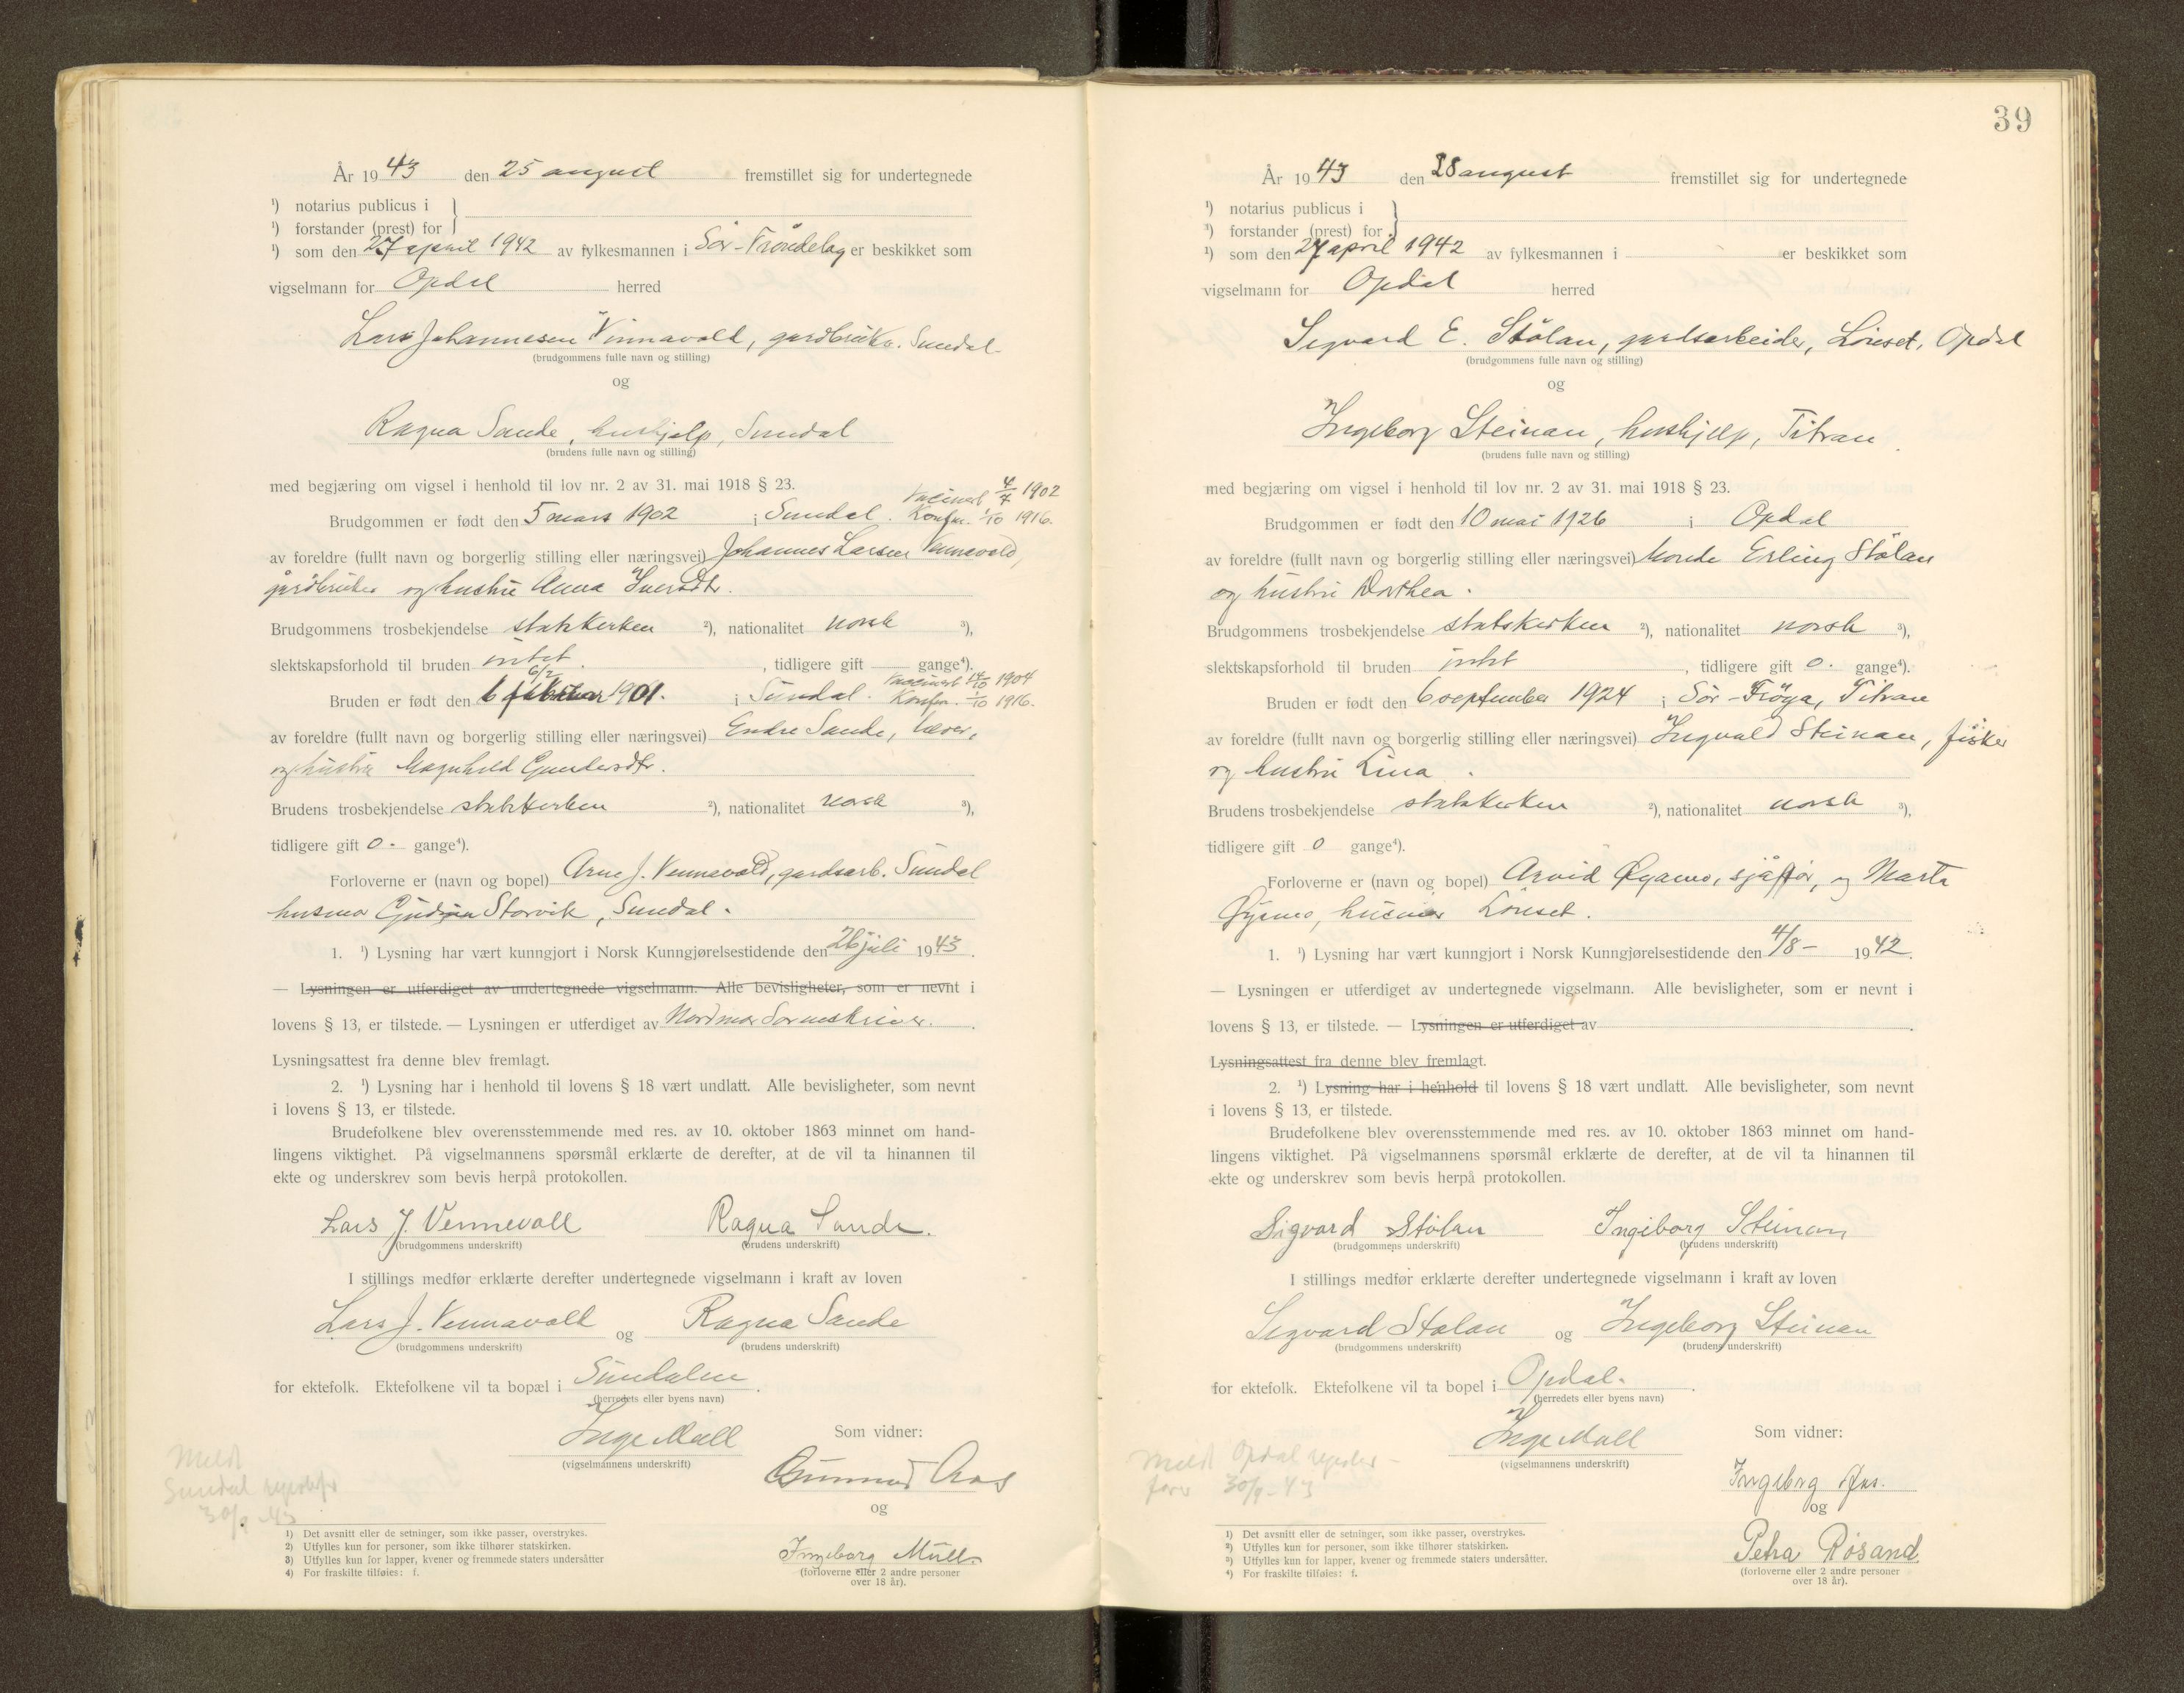 År 1943 den 25 august fremstillet sig for undertegnede
1) notarius publicus i
1) forstander (prest) for
1) som den 27 april 1942 av fylkesmannen i Sør-Trøndelag er beskikket som
vigselmann for Opdal herred
Lars Johannesen Vinnavoll, gardbruker. Sundal
(brudgommens fulle navn og stilling)
og
Ragna Sande, hushjelp, Sundal
(brudens fulle navn og stilling)
med begjæring om vigsel i henhold til lov nr. 2 av 31. mai 1918 § 23.
Vaccinert 4/7 1902
Brudgommen er født den 5 mars 1902 i Sundal. Konfr. 1/10 1916.
av foreldre (fullt navn og borgerlig stilling eller næringsvei) Johannes Larsen Vennevold,
gårdbruker og hustru Anna
Brudgommens trosbekjendelse statskirken 2), nationalitet norsk 3),
slektskapsforhold til bruden intet , tidligere gift gange4).
6/2 Vaccinert 14/10 1904
Bruden er født den 6 februar 1901. i Sundal. Konfr. 1/10 1916.
av foreldre (fullt navn og borgerlig stilling eller næringsvei) Endre Sande,
og hustru Magnhild Gundersdtr.
Brudens trosbekjendelse statskirken 2), nationalitet norsk 3),
tidligere gift 0. gange4).
Forloverne er (navn og bopel) Arne J. Vennevold, gardsarb. Sundal
husmor Gudrun Storvik, Sundal.
1. 1) Lysning har vært kunngjort i Norsk Kunngjørelsestidende den 26 juli 1943.
— Lysningen er utferdiget av undertegnede vigselmann. Alle bevisligheter, som er nevnt i
lovens § 13, er tilstede. — Lysningen er utferdiget av Nordmør Sorenskriver.
Lysningsattest fra denne blev fremlagt.
2. 1) Lysning har i henhold til lovens § 18 vært undlatt. Alle bevisligheter, som nevnt
i lovens § 13, er tilstede.
Brudefolkene blev overensstemmende med res. av 10. oktober 1863 minnet om hand-
lingens viktighet. På vigselmannens spørsmål erklærte de derefter, at de vil ta hinannen til
ekte og underskrev som bevis herpå protokollen.
Lars J. Vennevoll Ragna Sande.
(brudgommens underskrift) (brudens underskrift)
I stillings medfør erklærte derefter undertegnede vigselmann i kraft av loven
Lars J. Vennavoll og Ragna Sande
(brudgommens underskrift) (brudens underskrift)
for ektefolk. Ektefolkene vil ta bopæl i Sundalen.
(herredets eller byens navn)
Inge Mull Som vidner:
(vigselmannens underskrift)
Gunnvor Aas
og
Ingeborg Mull
(forloverne eller 2 andre personer
over 18 år).
Meldt
Sundal
30/9-43
1) Det avsnitt eller de setninger, som ikke passer, overstrykes.
2) Utfylles kun for personer, som ikke tilhører statskirken.
3) Utfylles kun for lapper, kvener og fremmede staters undersåtter
4) For fraskilte tilføies: f.
39
År 1943 den 28 august fremstillet sig for undertegnede
1) notarius publicus i
1) forstander (prest) for
1) som den 27 april 1942 av fylkesmannen i er beskikket som
vigselmann for Opdal herred
Sigvard E. Stölan, gardsarbeider, Lönset, Opdal
(brudgommens fulle navn og stilling)
og
Ingeborg Steinan, hushjelp, Titran
(brudens fulle navn og stilling)
med begjæring om vigsel i henhold til lov nr. 2 av 31. mai 1918 § 23.
Brudgommen er født den 10 mai 1926 i Opdal
av foreldre (fullt navn og borgerlig stilling eller næringsvei) bonde Erling Stölan
og hustru Dorthea.
Brudgommens trosbekjendelse statskirken 2), nationalitet norsk 3),
slektskapsforhold til bruden intet , tidligere gift 0. gange4).
Bruden er født den 6 september 1924 i Sör-Fröya, Titran
av foreldre (fullt navn og borgerlig stilling eller næringsvei) Ingvald Steinan, fisker
og hustru Lina.
Brudens trosbekjendelse statskirken 2), nationalitet norsk 3),
tidligere gift 0 gange4).
Forloverne er (navn og bopel) Arvid Øyamo, sjåfför, og Marta
Øyamo, husmor Lönset.
1. 1) Lysning har vært kunngjort i Norsk Kunngjørelsestidende den 4/8 - 1942.
— Lysningen er utferdiget av undertegnede vigselmann. Alle bevisligheter, som er nevnt i
lovens § 13, er tilstede. — Lysningen er utferdiget av .
Lysningsattest fra denne blev fremlagt.
2. 1) Lysning har i henhold til lovens § 18 vært undlatt. Alle bevisligheter, som nevnt
i lovens § 13, er tilstede.
Brudefolkene blev overensstemmende med res. av 10. oktober 1863 minnet om hand-
lingens viktighet. På vigselmannens spørsmål erklærte de derefter, at de vil ta hinannen til
ekte og underskrev som bevis herpå protokollen.
Sigvard Stölan Ingeborg Steinan
(brudgommens underskrift) (brudens underskrift)
I stillings medfør erklærte derefter undertegnede vigselmann i kraft av loven
Sigvard Stølan og Ingeborg Steinan
(brudgommens underskrift) (brudens underskrift)
for ektefolk. Ektefolkene vil ta bopel i Opdal.
(herredets eller byens navn)
Inge Mull Som vidner:
(vigselmannens underskrift)
Ingebrg Øas.
og
Petra Rösand
(forloverne eller 2 andre personer
over 18 år).
Meldt Opdal register-
fører 30/9-43
1) Det avsnitt eller de setninger, som ikke passer, overstrykes.
2) Utfylles kun for personer, som ikke tilhører statskirken.
3) Utfylles kun for lapper, kvener og fremmede staters undersåtter.
4) For fraskilte tilføies: f.